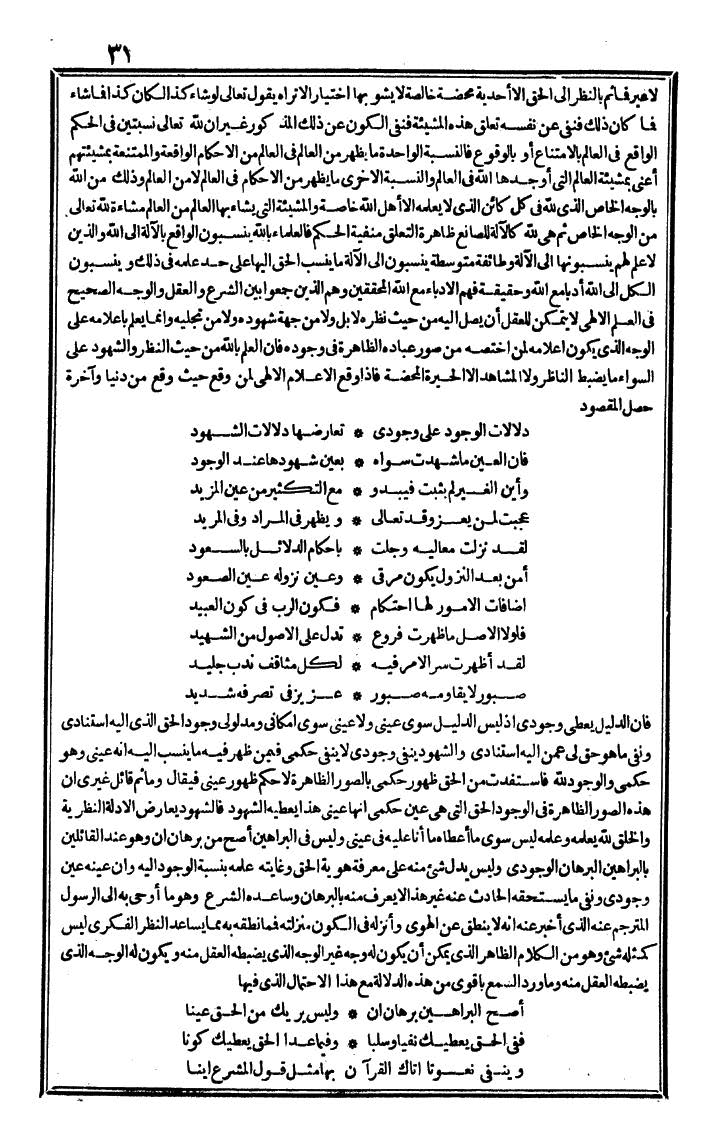 ٣١
لاغير فما ثم بالنظر الى الحق الا أحدية محضة خالصة لا يشوبها اختيار الا تراه يقول تعالى لو شاء كذا لكان كذا فما شاء
فما كان ذلك فنفى عن نفسه تعلق هذه المشيئة فنفى الكون عن ذلك المذكور غير ان لله تعالى نسبتين فى الحكم
الواقع فى العالم بالامتناع أو بالوقوع فالنسبة الواحدة ما يظهر من العالم فى العالم من الاحكام الواقعة والممتنعة بمشيئتهم
أعنى بمشيئة العالم التى أوجدها الله فى العالم والنسبة الاخرى ما يظهر من الاحكام فى العالم لا من العالم وذلك من الله
بالوجه الخاص الذى لله فى كل كائن الذى لا يعلمه الا أهل الله خاصة والمشيئة التى يشاء بها العالم من العالم مشاءة لله تعالى
من الوجه الخاص ثم هى لله كالآلة للصانع ظاهرة التعلق منفية الحكم فالعلماء بالله ينسبون الواقع بالآلة الى الله والذين
لا علم لهم ينسبونها الى الآلة وطائفة متوسطة ينسبون الى الآلة ما ينسب الحق اليها على حد علمه فى ذلك وينسبون
الكل الى الله أدبا مع الله وحقيقة فهم الادباء مع الله المحققين وهم الذين جمعوا بين الشرع والعقل والوجه الصحيح
فى العلم الالهى لا يتمكن للعقل أن يصل اليه من حيث نظره لا بل ولا من جهة شهوده ولا من تجليه وانما يعلم باعلامه على
الوجه الذى يكون اعلامه لمن اختصه من صور عباده الظاهرة فى وجوده فان العلم بالله من حيث النظر والشهود على
السواء ما يضبط الناظر ولا المشاهد الا الحيرة المحضة فاذا وقع الاعلام الالهى لمن وقع حيث وقع من دنيا وآخرة
حصل المقصود
دلالات الوجود على وجودى * تعارضها دلالات الشهود
فان العين ما شهدت سواه * بعين شهودها عند الوجود
وأين الغير لم يثبت فيبدو * مع التكثير من عين المزيد
عجبت لمن يعز وقد تعالى * ويظهر فى المراد وفى المريد
لقد نزلت معاليه وجلت * باحكام الدلائل بالسعود
أمن بعد النزول يكون مرقى * وعين نزوله عين الصعود
اضافات الامور لها احتكام * فكون الرب فى كون العبيد
فلولا الاصل ما ظهرت فروع * تدل على الاصول من الشهيد
لقد أظهرت سر الامر فيه * لكل مثاقف ندب جليد
صبور لا يقاومه صبور * عزيز فى تصرفه شديد
فان الدليل يعطى وجودى اذ ليس الدليل سوى عينى ولا عينى سوى امكانى ومدلولى وجود الحق الذى اليه استنادى
ونفى ما هو حق لى عمن اليه استنادى والشهود ينفى وجودى لا ينفى حكمى فيمن ظهر فيه ما ينسب اليه انه عينى وهو
حكمى والوجود لله فاستفدت من الحق ظهور حكمى بالصور الظاهرة لا حكم ظهور عينى فيقال وما ثم قائل غيرى ان
هذه الصور الظاهرة فى الوجود الحق التى هى عين حكمى انها عينى هذا يعطيه الشهود فالشهود يعارض الادلة النظرية
والخلق لله يعلمه وعلمه ليس سوى ما أعطاه ما أنا عليه فى عينى وليس فى البراهين أصح من برهان ان وهو عند القائلين
بالبراهين البرهان الوجودى وليس يدل شئ منه على معرفة هوية الحق وغايته علمه بنسبة الوجود اليه وان عينه عين
وجودى ونفى ما يستحقه الحادث عنه غير هذا لا يعرف منه بالبرهان وساعده الشرع وهو ما أوحى به الى الرسول
المترجم عنه الذى أخبر عنه انه لا ينطق عن الهوى وأنزله فى الكون منزلته فما نطقه به مما يساعد النظر الفكرى ليس
كمثله شئ وهو من الكلام الظاهر الذى يمكن أن يكون له وجه غير الوجه الذى يضبطه العقل منه ويكون له الوجه الذى
يضبطه العقل منه وما ورد السمع باقوى من هذه الدلالة مع هذا الاحتمال الذى فيها
أصح البراهين برهان ان * وليس يريك من الحق عينا
ففى الحق يعطيك نفيا وسلبا * وفيما عدا الحق يعطيك كونا
وينفى نعوتا اتاك القرآن بها مثل قول المشرع اينا